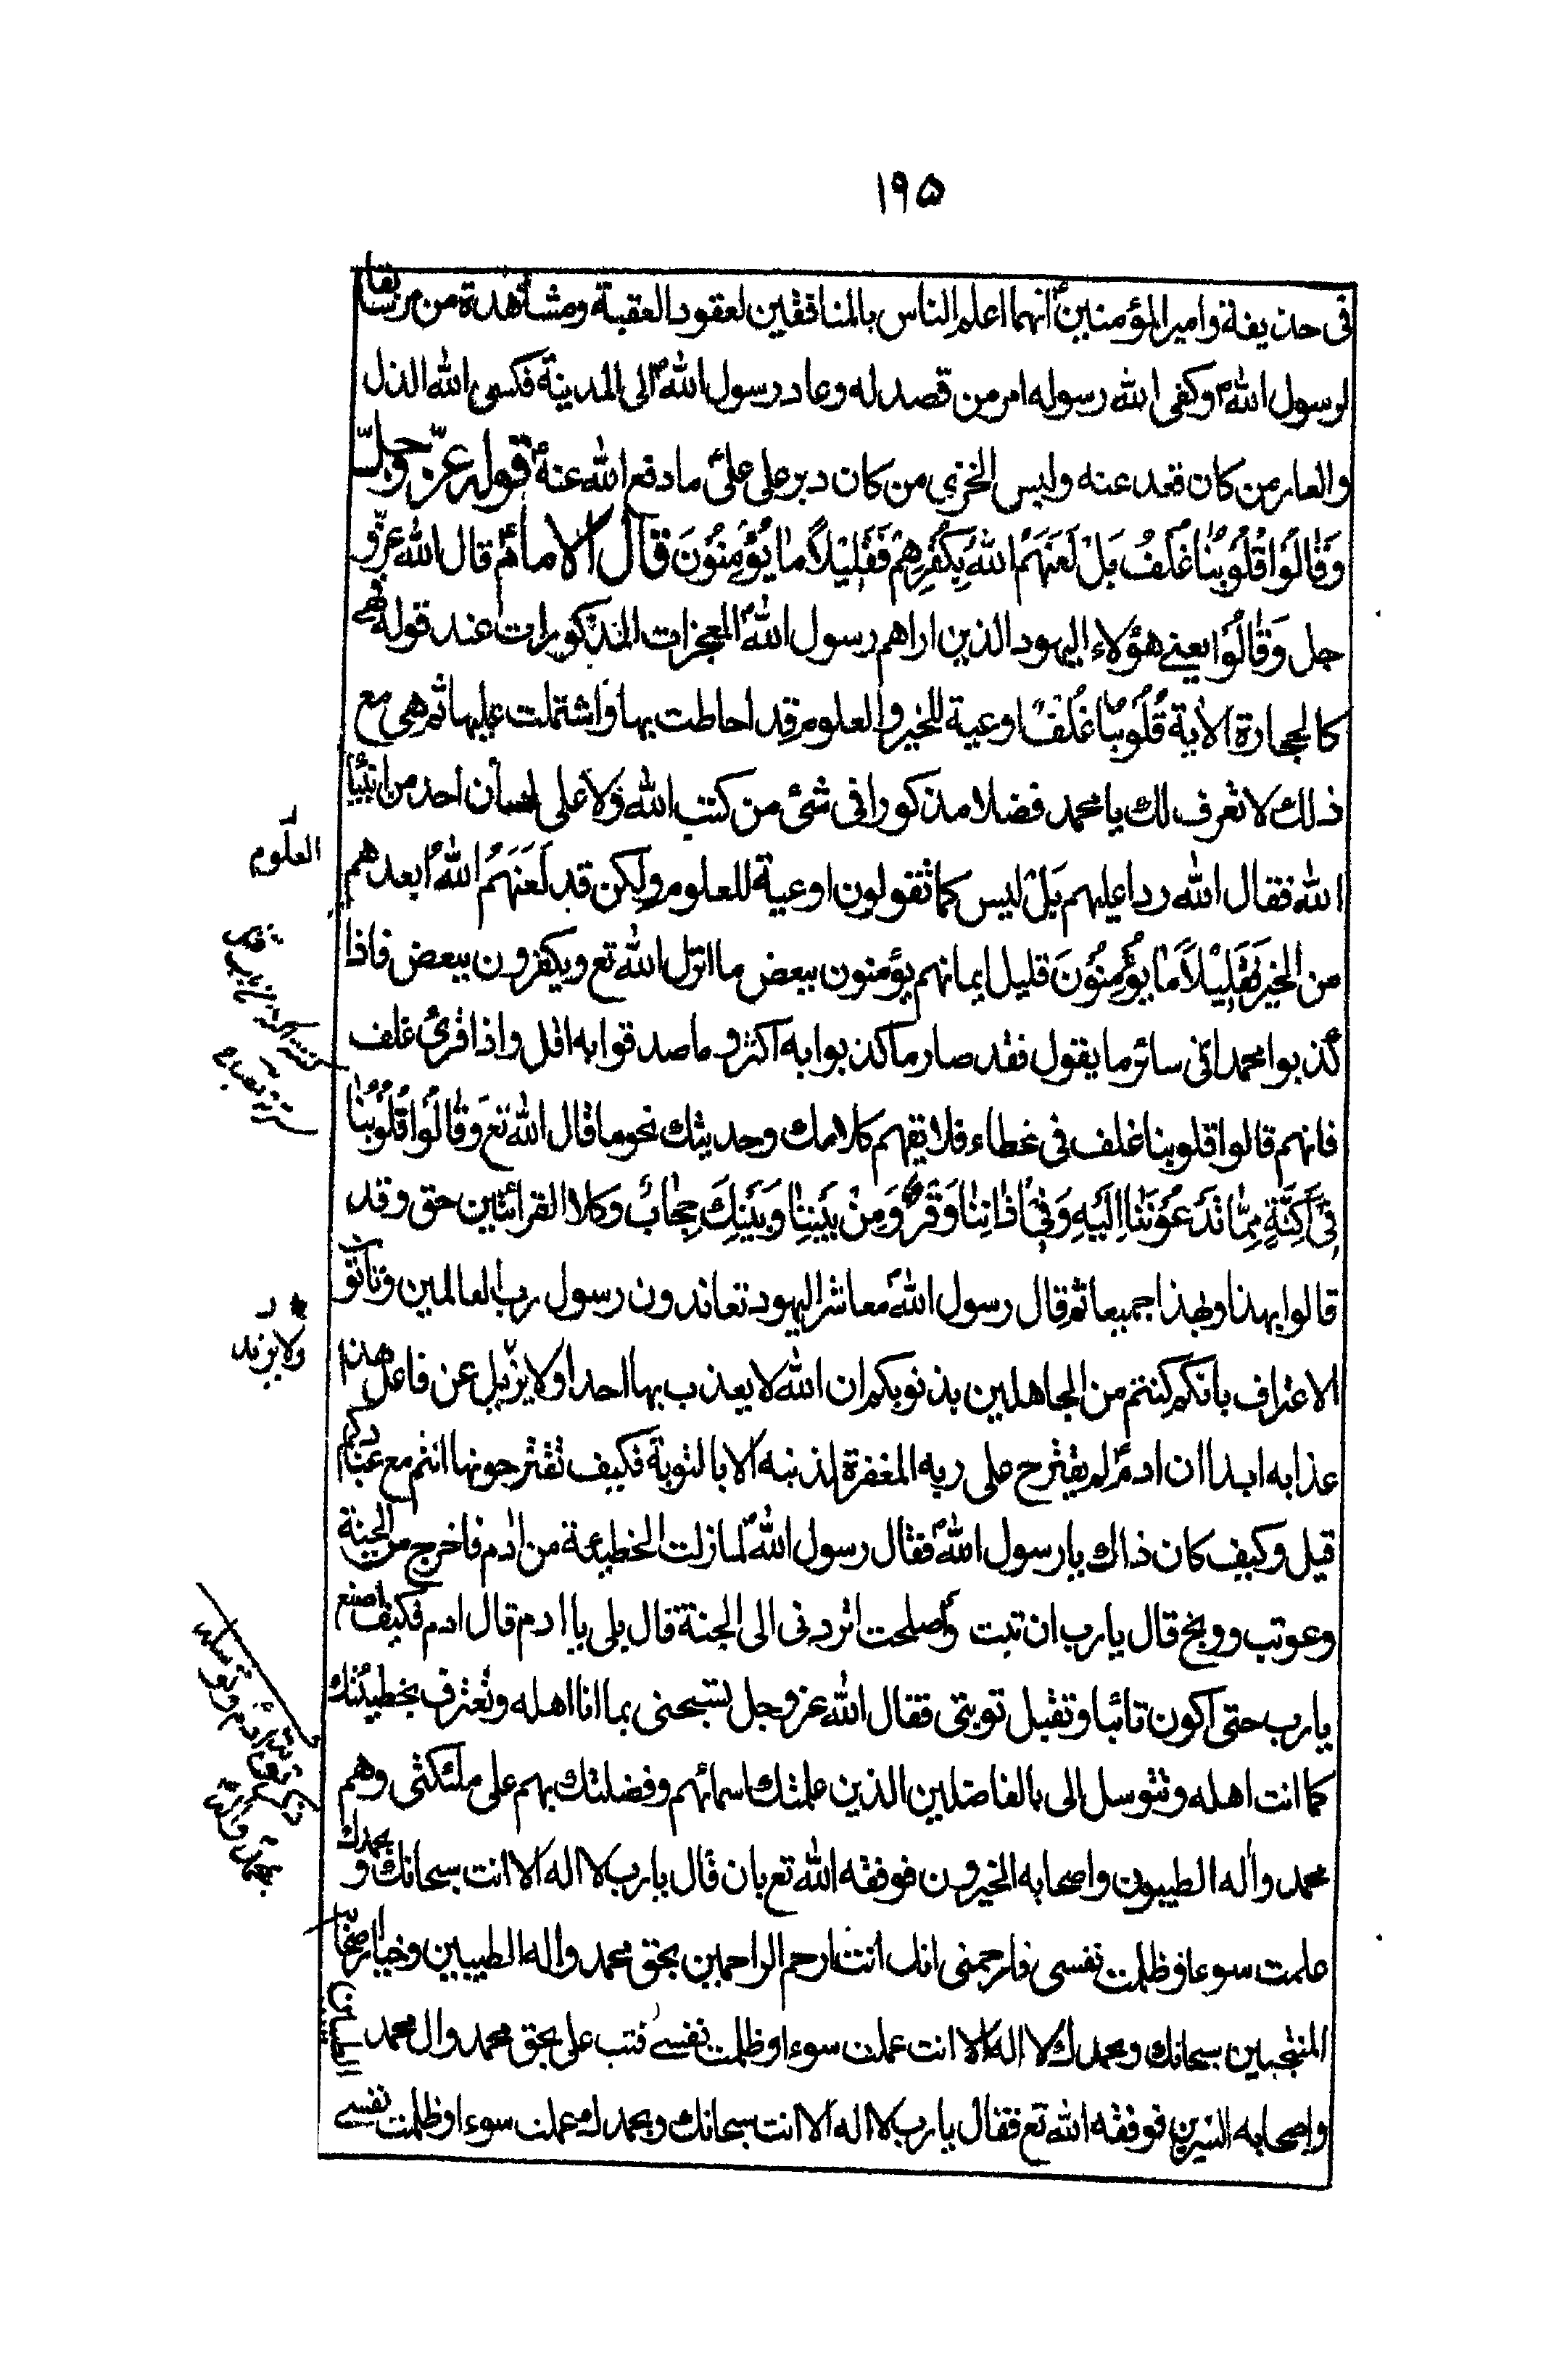 ١٩۵
فى حذيفة وامير المؤمنين ع انهما اعلم الناس بالمنافقين لعقود العقبة ومشاهدة من مر بها
لرسول الله ص وكفى الله رسوله امر من قصد له وعاد رسول الله ص الى المدينة فكسى الله الذل
والعار من كان قعد عنه ولبس الخزى من كان دبر على على ع ما دفع الله عنه قوله عزّ وجلّ
وَقٰالُوا قُلُوبُنٰا غُلْفٌ بَلْ لَعَنَهُمُ اللهُ بِكُفْرِهِمْ فَقَلِيْلاً مٰا يُؤْمِنُوْنَ قال الامام ع قال الله عزّ و
جل وَقٰالُوْا يعنى هؤلاء اليهود الذين اراهم رسول الله ص المعجزات المذكورات عند قوله فهى
كالحجارة الاية قُلُوبُنٰا غُلْفٌ اوعية للخير والعلوم قد احاطت بها واشتملت عليها ثم هى مع
ذلك لا تعرف لك يا محمد فضلا مذكورا فى شئ من كتب الله ولا على لسان احد من انبيا
الله فقال الله ردا عليهم بَلْ ليس كما تقولون اوعية للعلوم ولكن قد لَعَنَهُمُ اللهُ ابعدهم
من الخير فَقَلِيْلاً مٰا يُؤْمِنُوْنَ قليل ايمانهم يؤمنون ببعض ما انزل الله تع ويكفرون ببعض فاذا
كذبوا محمدا فى سائر ما يقول فقد صار ما كذبوا به اكثر وما صدقوا به اقل واذا قرئ غلف
فانهم قالوا قلوبنا غلف فى غطاء فلا نفهم كلامك وحديثك نحو ما قال الله تع وَقٰالُوْا قُلُوْبُنٰا
فِىْ اَكِنَّةٍ مِمّٰا تَدْعُوْنٰا اِلَيْهِ وَفِىْ اٰذٰانِنٰا وَقْرٌ وَمِنْ بَيْنِنٰا وَبَيْنِكَ حِجٰابٌ وكلا القرائتين حق وقد
قالوا بهذا وبهذا جميعا ثم قال رسول الله ص معاشر اليهود تعاندون رسول رب العالمين وتأبون
الاعتراف بانكم كنتم من الجاهلين بذنوبكم ان الله لا يعذب بها احدا ولا يزيل عن فاعل هذا
عذابه ابدا ان ادم ع لم يقترح على ربه المغفرة لذنبه الا بالتوبة فكيف تقترحونها انتم مع عنادكم
قيل وكيف كان ذاك يا رسول الله ص فقال رسول الله ص لما زلت الخطيئة من ادم فاخرج من الجنة
وعوتب ووبخ قال يا رب ان تبت واصلحت اتردنى الى الجنة قال بلى يا ادم قال ادم فكيف اصنع
يا رب حتى اكون تائبا وتقبل توبتى فقال الله عز وجل تسبحنى بما انا اهله وتعترف بخطيئتك
كما انت اهله وتتوسل الى بالفاضلين الذين علمتك اسمائهم وفضلتك بهم على ملئكتى وهم
محمد واله الطيبون واصحابه الخيرون فوفقه الله تع بان قال يا رب لا اله الا انت سبحانك وبحمدك
علمت سوءا وظلمت نفسى فارحمنى انك انت ارحم الراحمين بحق محمد واله الطيبين وخيار صحابة
المنتجبين سبحانك وبحمدك لا اله الا انت عملت سوءا وظلمت نفسى فتب على بحق محمد وال محمد الطيبين
واصحابه الخيرين فوفقه الله تع فقال يا رب لا اله الا انت سبحانك وبحمدك عملت سوءا وظلمت نفسى
العلوم
ولا يزيد